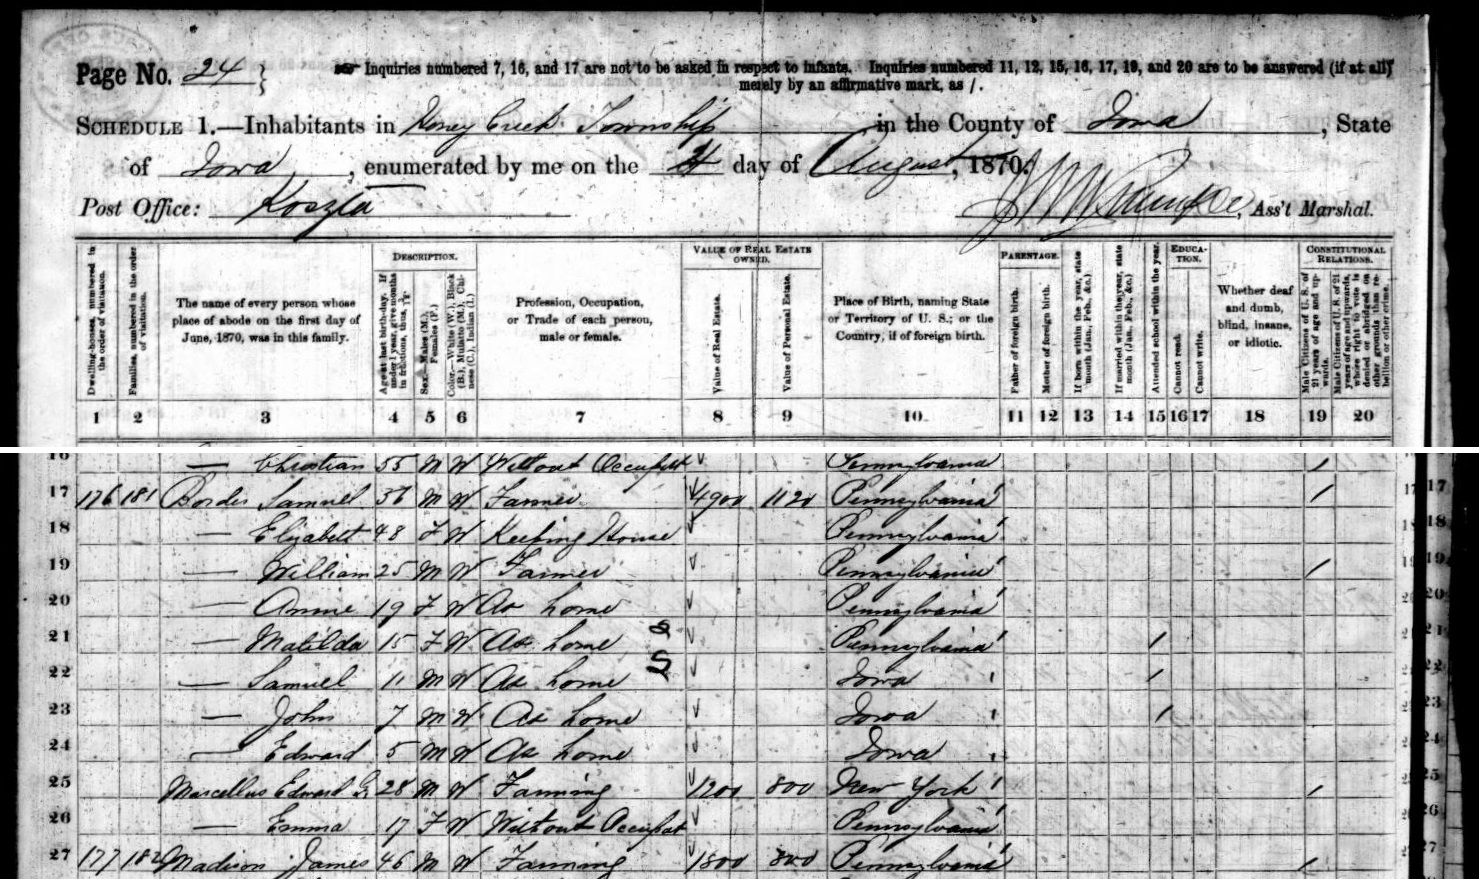 Page No. 24
Inquiries numbered 7, 16, and 17 are not to be asked in respect to infants. Inquiries numbered 11, 12, 15, 16, 17, 19, and 20 are to be answered (if at all)
merely by an affirmative mark, as /.
SCHEDULE 1.—Inhabitants in Honey Creek Township in the County of Iowa, State
of Iowa, enumerated by me on the day of August, 1870.
Post Office: Koszta Ass't Marshal.
Dwelling-houses, numbered in the order of visitation.
Families, numbered in the order of visitation.
The name of every person whose place of abode on the first day of June, 1870, was in this family.
DESCRIPTION.
Age at last birth-day. If under 1 year, give months in fractions, thus,
Sex.—Males (M.), Females (F.)
Color.—White (W.), Black (B.), Mulatto (M.), Chinese (C.), Indian (I.)
Profession, Occupation, or Trade of each person, male or female.
VALUE OF REAL ESTATE OWNED.
Value of Real Estate.
Value of Personal Estate.
Place of Birth, naming State or Territory of U. S.; or the Country, if of foreign birth.
PARENTAGE.
Father of foreign birth.
Mother of foreign birth.
If born within the year, state month (Jan., Feb., &c.)
If married within the year, state month (Jan., Feb., &c.)
Attended school within the year.
EDUCATION.
Cannot read.
Cannot write.
Whether deaf and dumb, blind, insane, or idiotic.
CONSTITUTIONAL RELATIONS.
Male Citizens of U. S. of 21 years of age and upwards.
Male Citizens of U. S. of 21 years of age and upwards, where right to vote is denied or abridged on other grounds than rebellion or other crime.
1 2 3 4 5 6 7 8 9 10 11 12 13 14 15 16 17 18 19 20
16 — Christian 55 M W Without Occupat Pennsylvania /
17 176 181 Border Samuel M W Farmer 4900 1120 Pennsylvania / 17
18 — Elizabeth 48 F W Keeping House Pennsylvania 18
19 — William 25 M W Farmer Pennsylvania / 19
20 — Annie 19 F W At home Pennsylvania 20
21 — Matilda 15 F W At home S Pennsylvania / 21
22 — Samuel 11 M W At home S Iowa / 22
23 — John 7 M W At home Iowa / 23
24 — Edward 5 M W At home Iowa 24
25 Marcellus Edward G. 28 M W Farming 1200 800 New York / 25
26 — Emma 17 F W Without Occupat Pennsylvania 26
27 177 182 Madison James 46 M W Farming 1800 800 Pennsylvania / 27